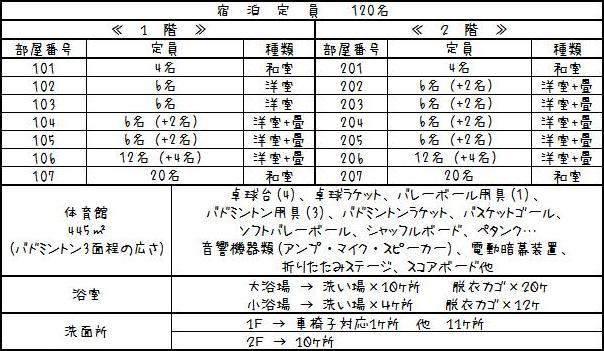 宿 泊 定 員　120名
≪ 1 階 ≫　≪ 2 階 ≫
部屋番号　定員　種類　部屋番号　定員　種類
101　4名　和室　201　4名　和室
102　6名　洋室　202　6名（+2名）　洋室+畳
103　6名　洋室　203　6名（+2名）　洋室+畳
104　6名（+2名）　洋室+畳　204　6名（+2名）　洋室+畳
105　6名（+2名）　洋室+畳　205　6名（+2名）　洋室+畳
106　12名（+4名）　洋室+畳　206　12名（+4名）　洋室+畳
107　20名　和室　207　20名　和室
体育館
445㎡
（バドミントン3面程の広さ）
卓球台（4）、卓球ラケット、バレーボール用具（1）、
バドミントン用具（3）、バドミントンラケット、バスケットゴール、
ソフトバレーボール、シャッフルボード、ペタンク…
音響機器類（アンプ・マイク・スピーカー）、電動暗幕装置、
折りたたみステージ、スコアボード他
浴室
大浴場 → 洗い場×10ヶ所　脱衣カゴ×20ヶ
小浴場 → 洗い場×4ヶ所　脱衣カゴ×12ヶ
洗面所
1F → 車椅子対応1ヶ所　他　11ヶ所
2F → 10ヶ所